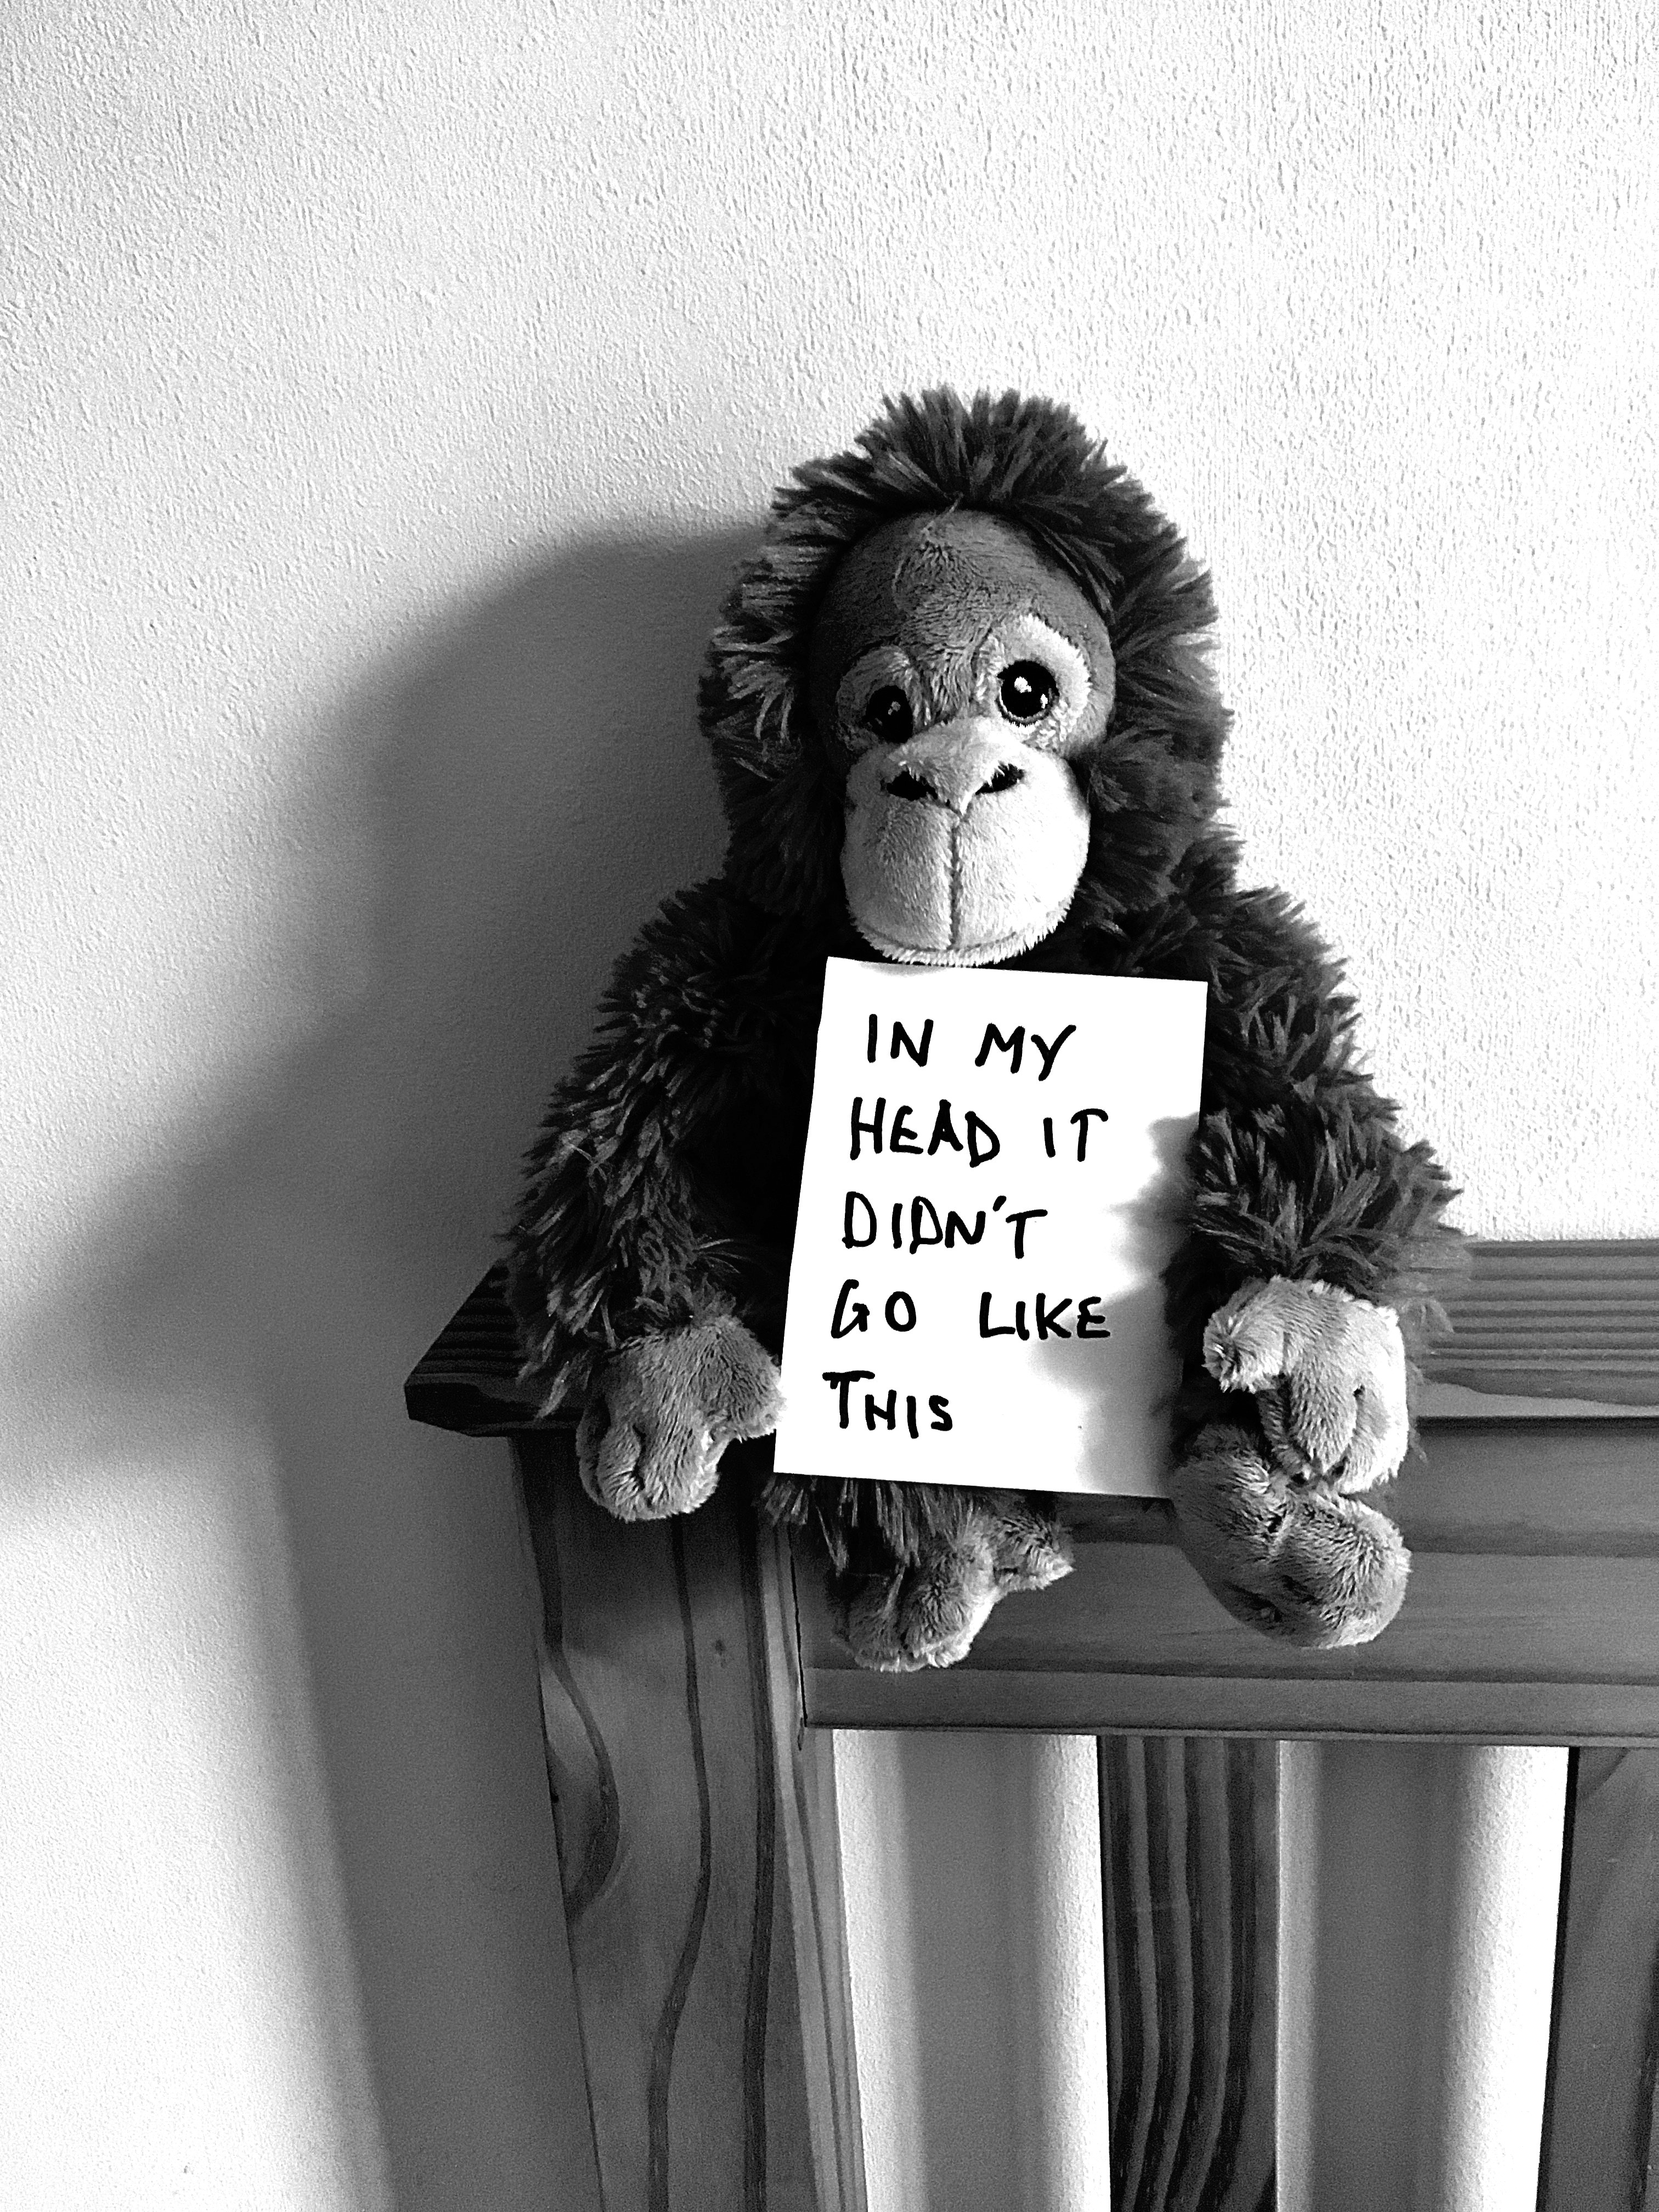 IN MY
HEAD IT
DIDN'T
GO LIKE
THIS